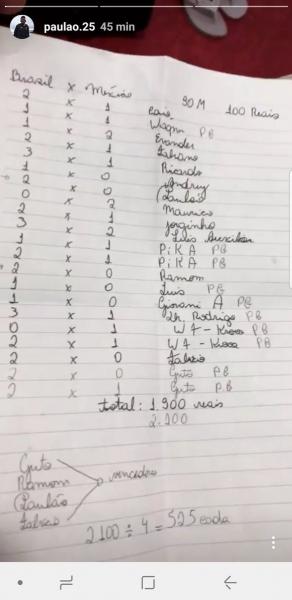 paulao.25 45 min
Brasil x México 90 M 100 Reais
2 x 1
1 x 1 Wagner PB
1 x 2 Evandro
2 x 1 Fabiano
3 x 1 Ricardo
1 x 0 Andrey
2 x 0 (Paulão
0 x 2 Mauricio
2 x 1 Jorginho
3 x 2 Luis
1 x 1 PiKA PB
2 x 1 PiKA PB
2 x 0 Ramom
1 x 0 Luis PB
1 x 0 Giovani A PB
3 x 1 Rodrigo PB
0 x 1 W4 - PB
2 x 1 W4 - PB
2 x 0
2 x 0 Guto PB
2 x 1 Guto PB
total: 1.900 reais
2.100
Guto
Ramom
(Paulão
vencedores
2100 ÷ 4 = 525 cada